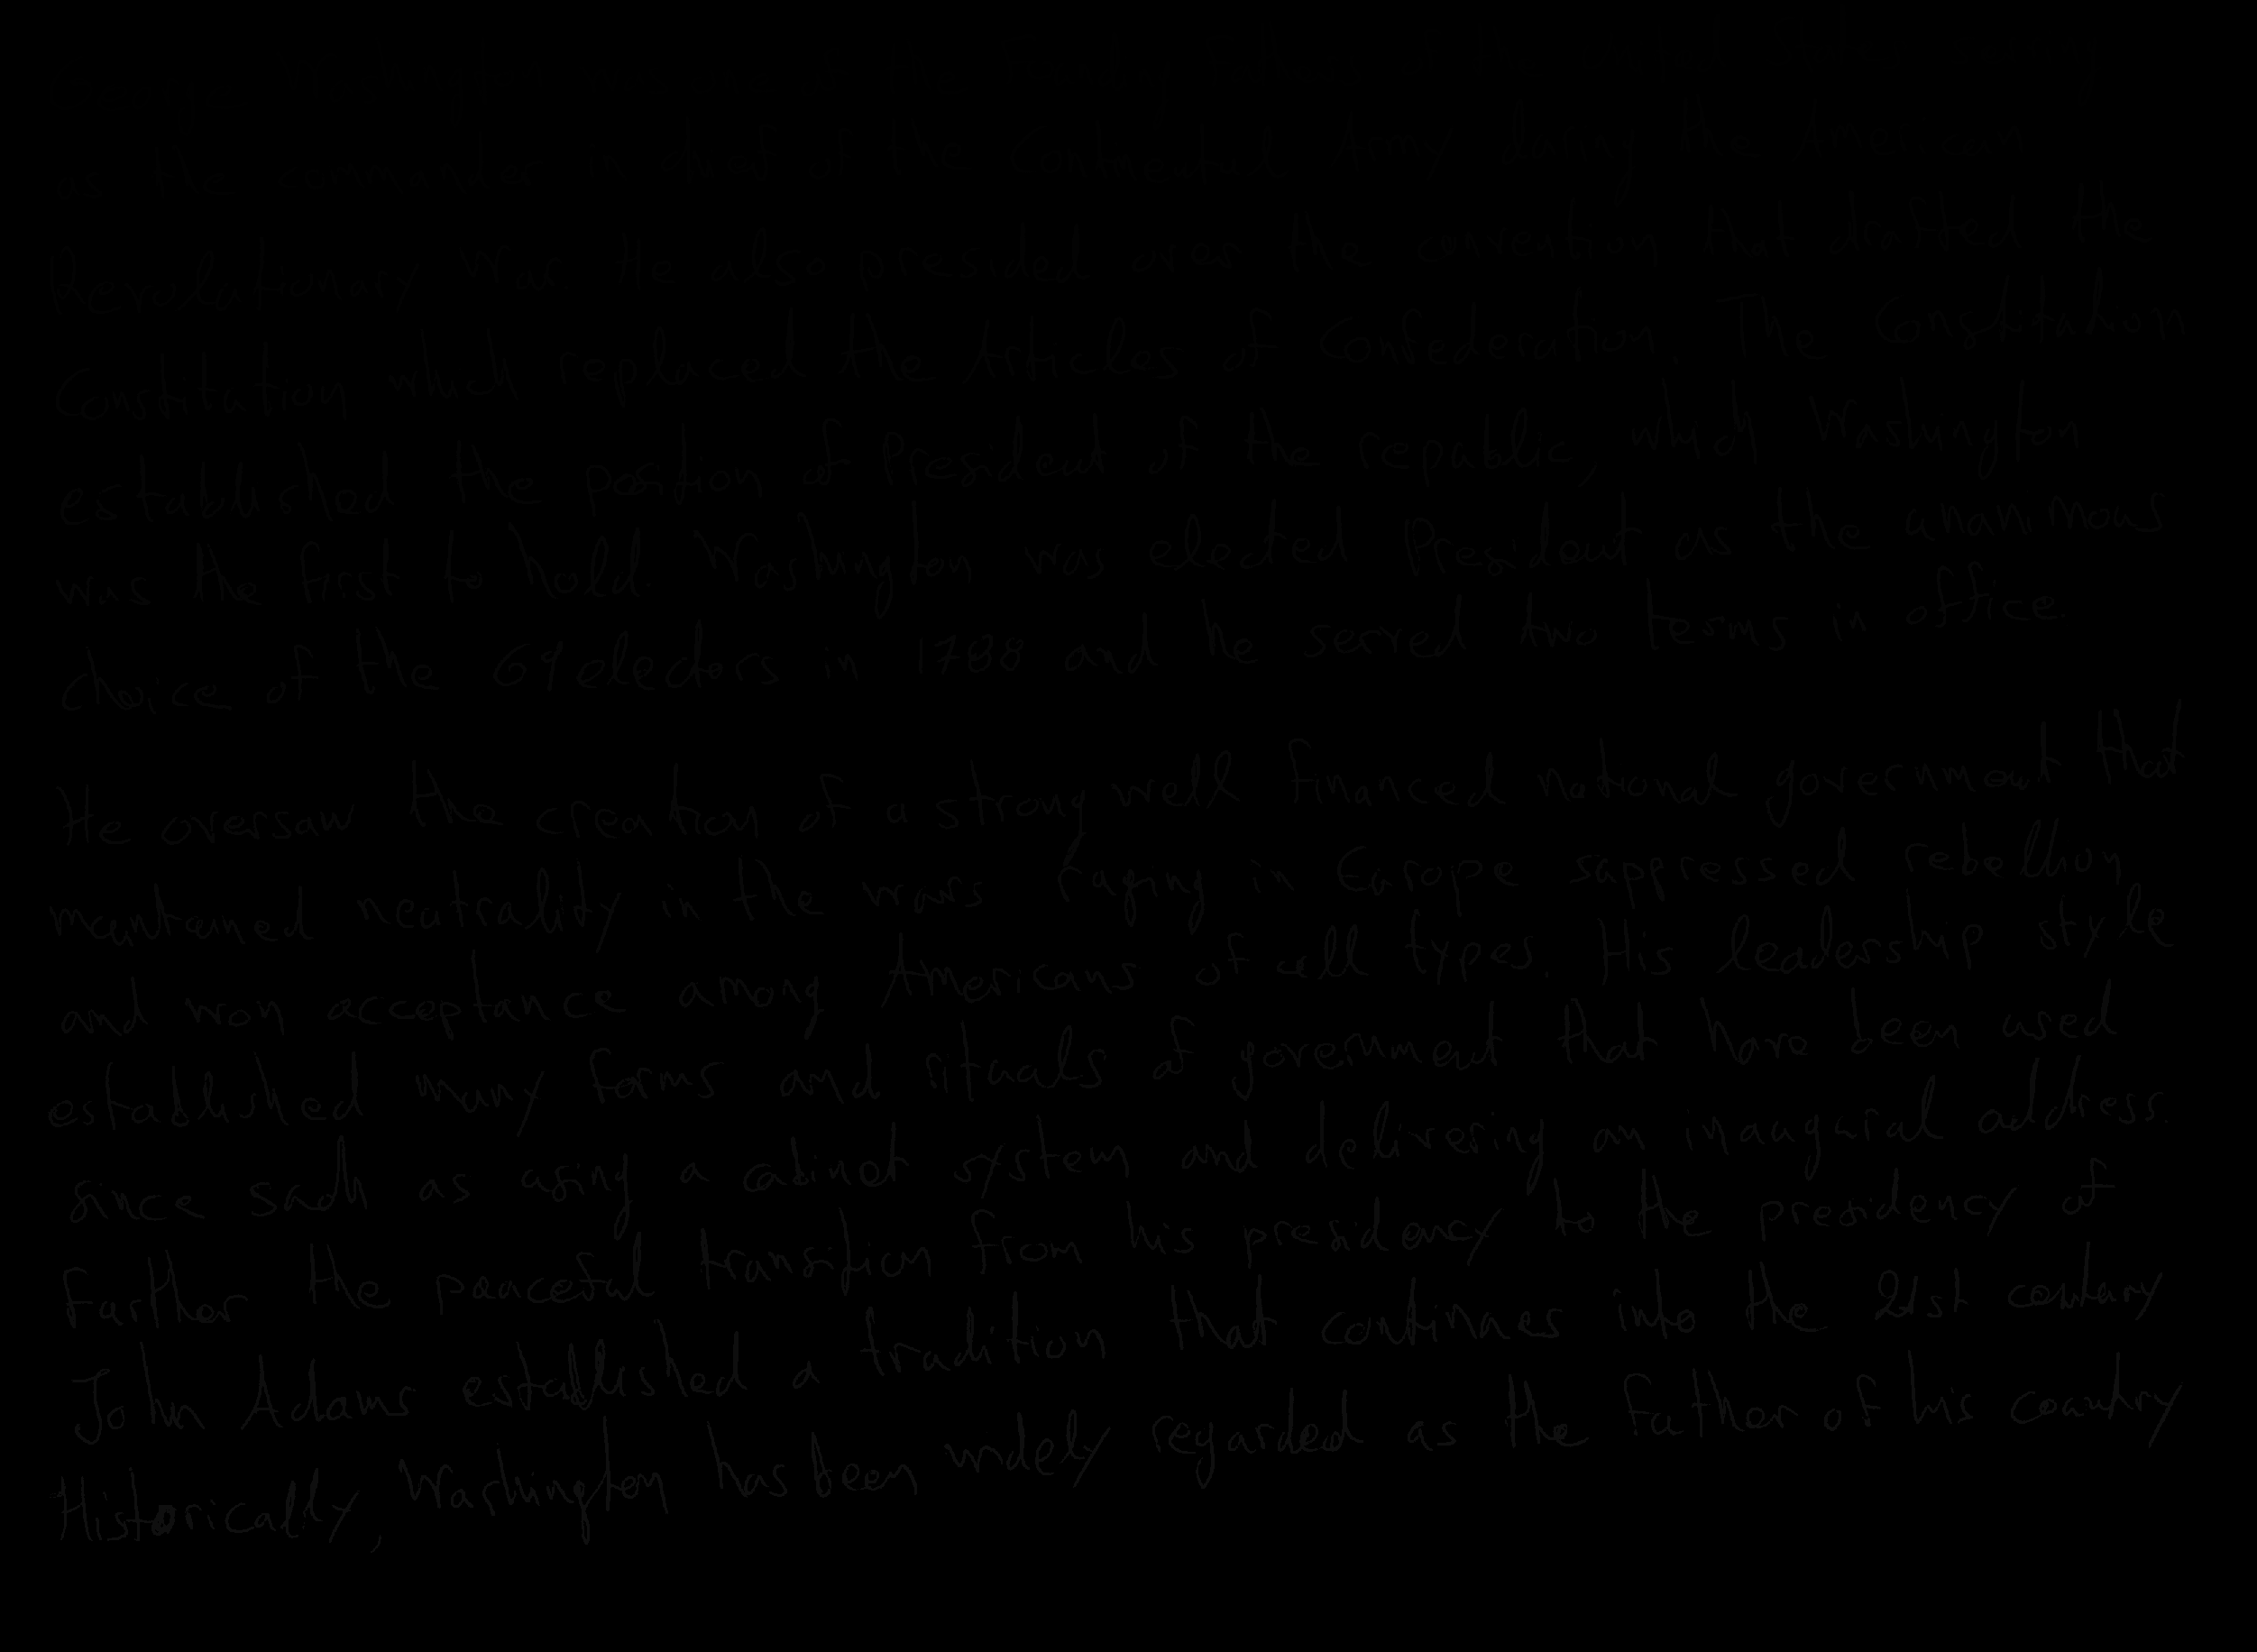 as the commander in chief of the Continental Army during the American
Revolutionary War. He also presided over the convention that drafted the
Constitution which replaced the Articles of Confederation. The Constitution
established the position of President of the republic, which Washington
was the first to hold. Washington was elected President as the unanimous
choice of the 69 electors in 1788 and he served two terms in office.
He oversaw the creation of a strong well financed national government that
maintained neutrality in the wars raging in Europe suppressed rebellion
and won acceptance among Americans of all types. His leadership style
established many forms and rituals of government that have been used
since such as using a cabinet system and delivering an inaugural address.
Further the peaceful transition from his presidency to the presidency of
John Adams established a tradition that continues into the 21st century
Historically, Washington has been widely regarded as the father of his country